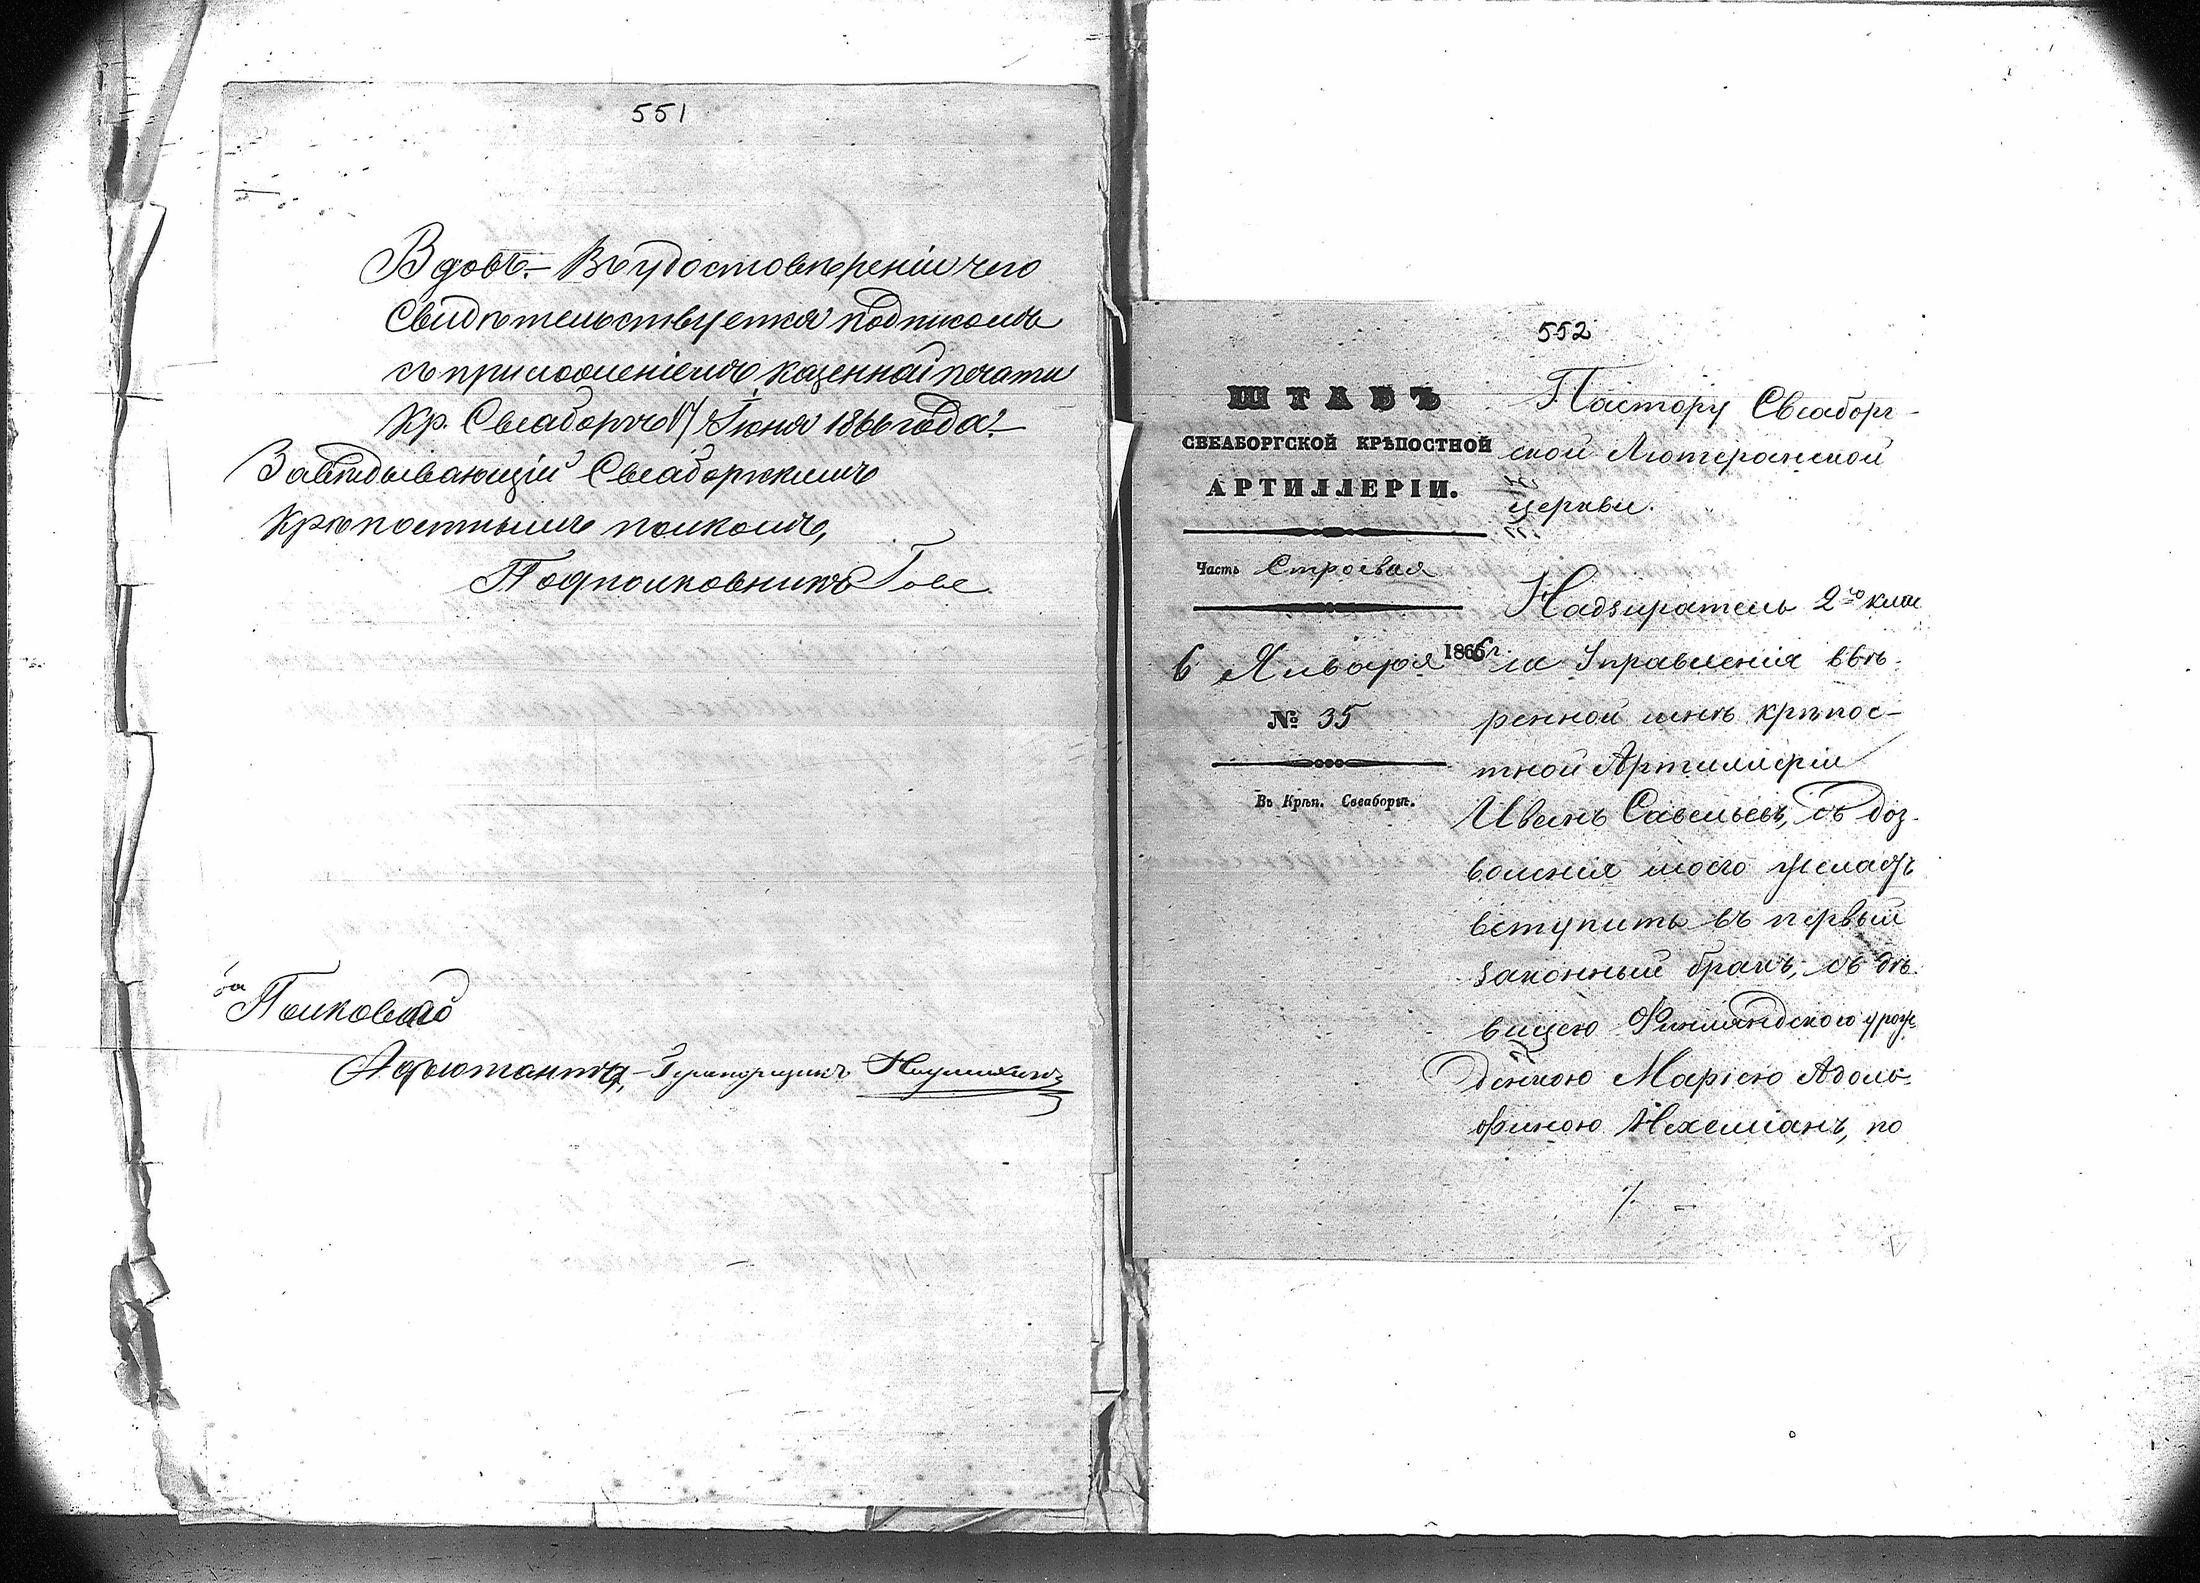 551
Вдовѣ. – Въ удостовѣреніи чего
свидѣтельствуется подписомъ
съ приложеніемъ казенной печати
Кр. Свеаборгъ 17 Іюня 1866 года. –
Завѣдывающій Свеаборгскимъ
Крѣпостнымъ полкомъ,
Подполковникъ
за Полковаго
Адъютанта, – Прапорщикъ
552
ШТАБЪ
СВЕАБОРГСКОЙ КРѢПОСТНОЙ
АРТИЛЛЕРІИ.
Часть Строевая
6 Января 1866 г.
№ 35
Въ Крѣп. Свеаборгѣ.
Пастору Свеаборг-
ской Лютеранской
церкви.
Надзиратель 2го клас
са Управленія ввѣ-
ренной мнѣ крѣпос-
тной Артиллеріи
Иванъ Савельевъ, съ доз-
воленія моего желаетъ
вступить въ первый
законный бракъ, съ дѣ-
вицею Финляндского урож-
денкою Маріею Адоль-
финою Нехеміанъ, по